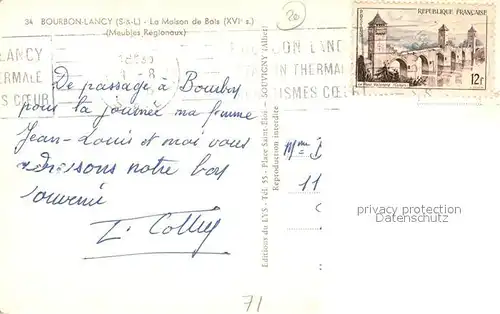 34 BOURBON-LANCY (S.&L.) - La Maison de Bois (XVIe s.)
(Meubles Régionaux)
20
LANCY
THERMALE
S CŒUR
BOURBON LANCY
STATION THERMALE
RHUMATISMES CŒUR
RÉPUBLIQUE FRANÇAISE
12F
De passage à Bourbon
pour la journée ma femme
Jean-Louis et moi vous
adressons notre bon
souvenir
Editions du LYS - Tél. 55 - Place Saint-Eloi - JOUVIGNY (Allier)
Reproduction interdite
Mme
11
privacy protection
Datenschutz
71